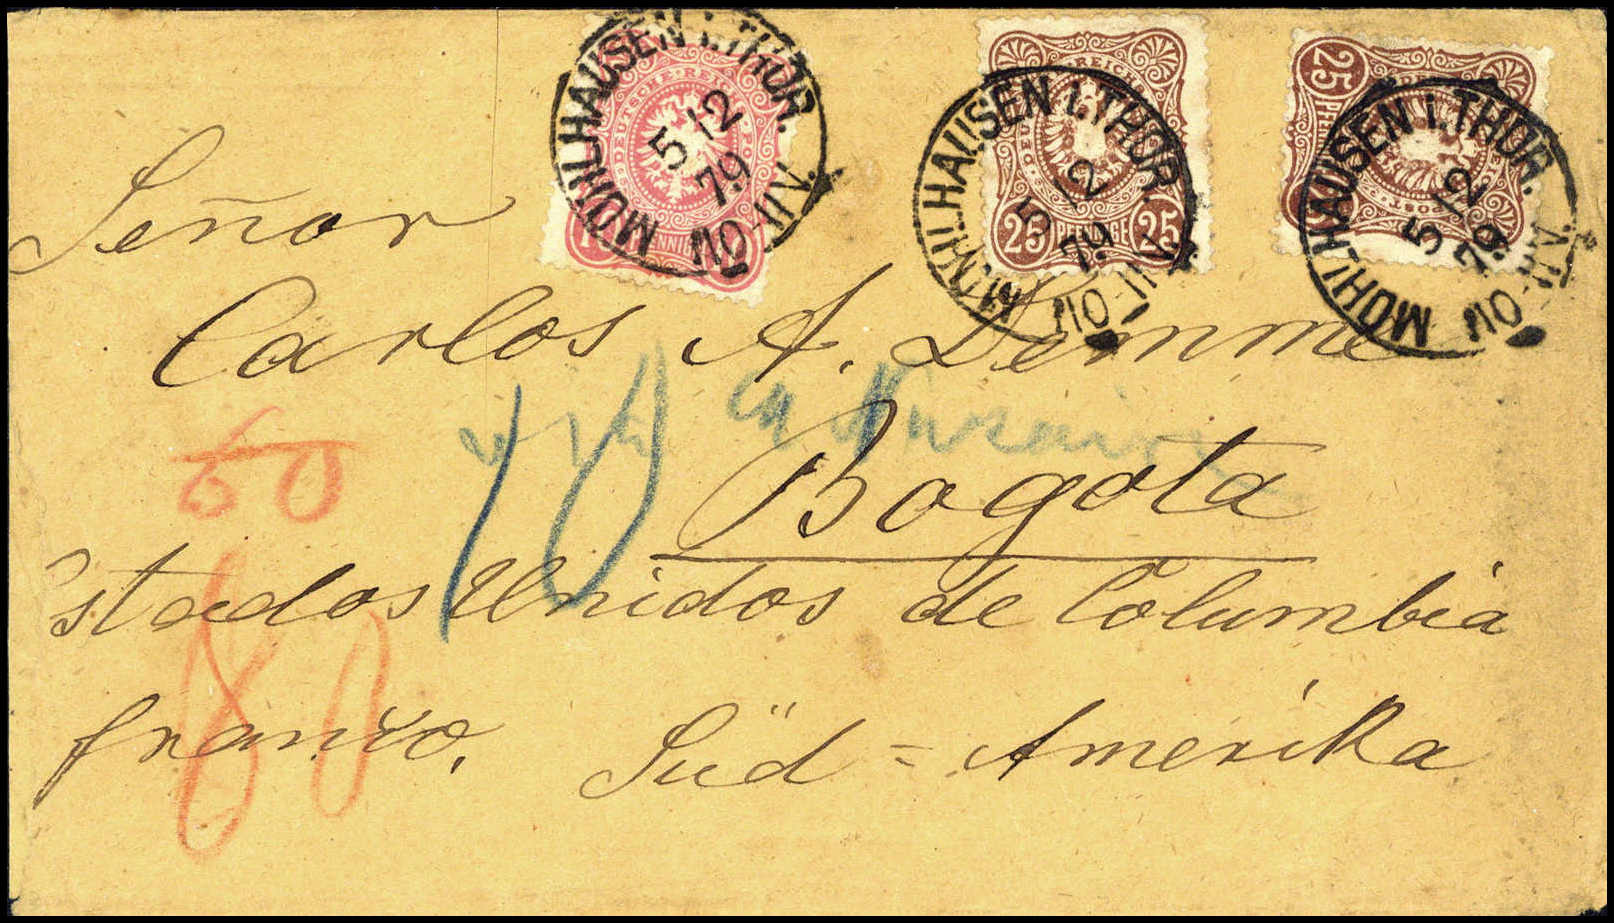 MÜHLHAUSEN i. THÜR.
5 12
79
10-11 V.
DEUTSCHE REICHS-POST
10 PFENNIG 10
MÜHLHAUSEN i. THÜR.
5 12
79
10-11 V.
REICH
25 PFENNIGE 25
MÜHLHAUSEN i. THÜR.
5 12
79
10-11 V.
25 PFENNIGE
Señor
Carlos A. Demme
via St Nazaire
Bogota
60
10
Estados Unidos de Columbia
80
franco. Süd-Amerika